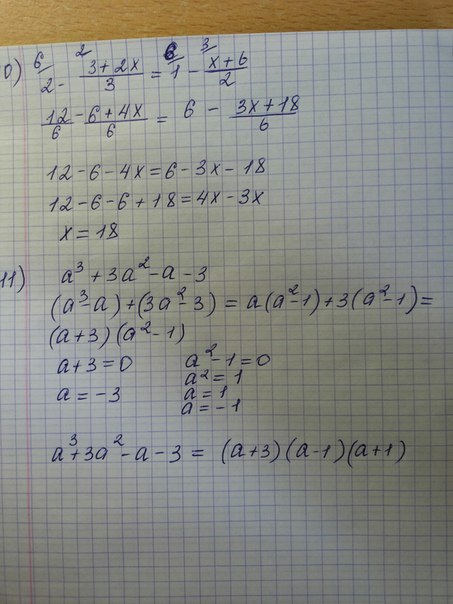 0) 6/ 2 - 2/ (3+2x)/3 = 6/ 1 - 3/ (x+6)/2
12/6 - (6+4x)/6 = 6 - (3x+18)/6
12-6-4x=6-3x-18
12-6-6+18=4x-3x
x=18
11) a³+3a²-a-3
(a³-a)+(3a²-3)=a(a²-1)+3(a²-1)=
(a+3)(a²-1)
a+3=0 a²-1=0
a=-3 a²=1
a=1
a=-1
a³+3a²-a-3=(a+3)(a-1)(a+1)